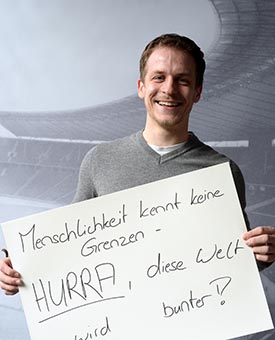 Menschlichkeit kennt keine
Grenzen -
HURRA, diese Welt
wird bunter!